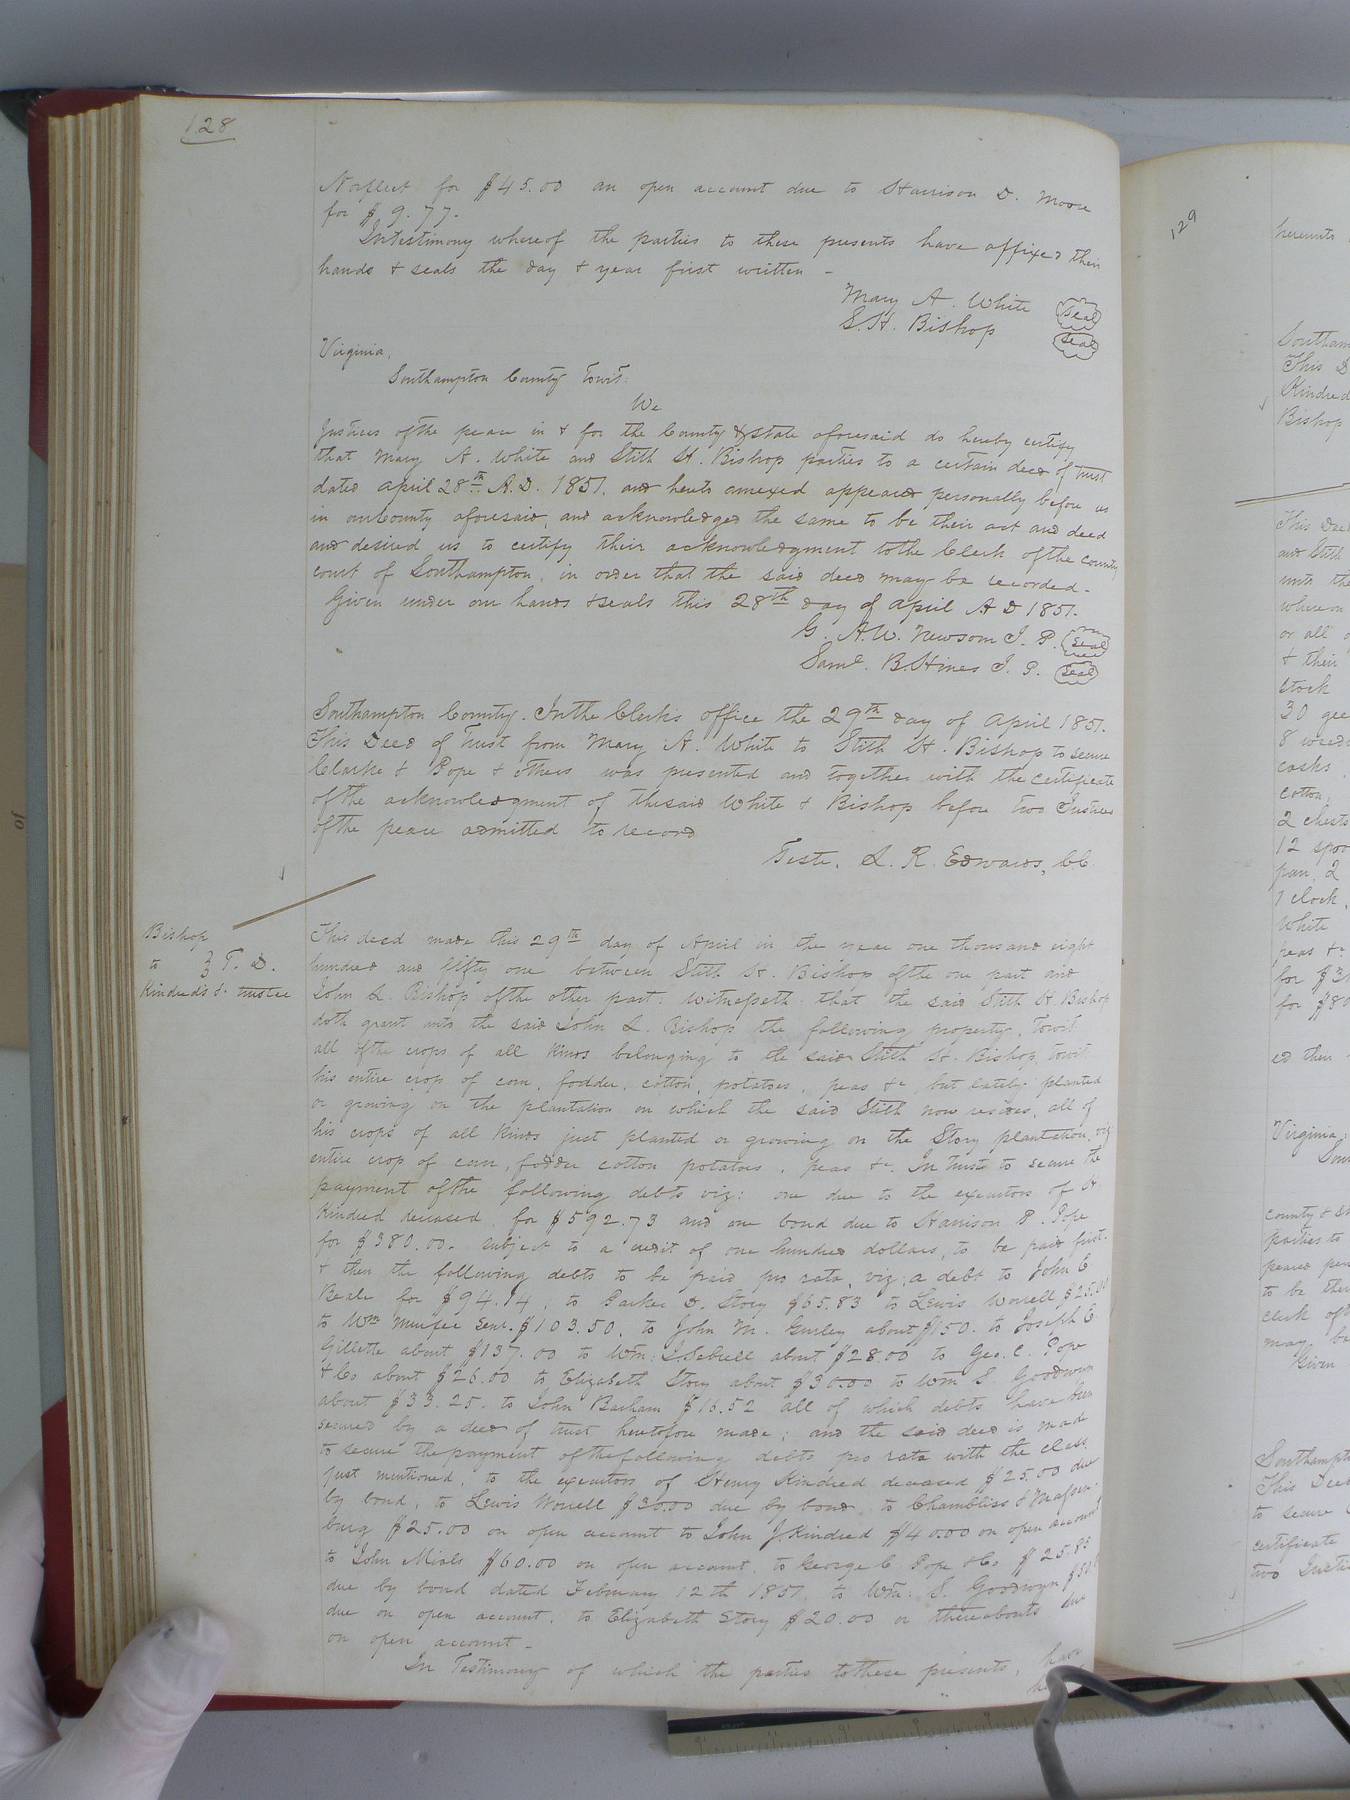 128
Norfleet for $45.00 an open account due to Harrison D. Moore
for $9.77.
In testimony whereof the parties to these presents have affixed their
hands & seals the day & year first written –
Mary A. White Seal
S. H. Bishop Seal
Virginia,
Southampton County towit.
We
Justices of the peace in & for the County & State aforesaid do hereby certify
that Mary A. White and Stith H. Bishop parties to a certain deed of trust
dated april 28th A.D. 1851. and hereto annexed appeared personally before us
in our County aforesaid, and acknowledged the same to be their act and deed
and desired us to certify their acknowledgment to the Clerk of the county
court of Southampton, in order that the said deed may be recorded –
Given under our hands & seals this 28th day of april A D 1851.
G. A. W. Newsom J. P. Seal
Saml. B. Hines J. P. Seal
Southampton County. In the Clerk's office the 29th day of April 1851.
This Deed of Trust from Mary A. White to Stith H. Bishop to secure
Clarke & Pope & others was presented and together with the certificate
of the acknowledgment of the said White & Bishop before two Justices
of the peace admitted to record
Teste. L. R. Edwards, C.C.
Bishop
to } T. D.
Kindred's &c trustee
This deed made this 29th day of April in the year one thousand eight
hundred and fifty one between Stith H. Bishop of the one part and
John L. Bishop of the other part: witnesseth: that the said Stith H. Bishop
doth grant unto the said John L. Bishop the following property, Towit
all of the crops of all kinds belonging to the said Stith H. Bishop, towit
his entire crop of corn, fodder, cotton, potatoes, peas &c, but lately planted
or growing on the plantation on which the said Stith now resides, all of
his crops of all kinds just planted or growing on the Story plantation, viz
entire crop of corn, fodder cotton potatoes, peas &c. In trust to secure the
payment of the following debts viz: one due to the executors of H
Kindred deceased, for $592.73 and one bond due to Harrison P. Pope
for $380.00. subject to a credit of one hundred dollars, to be paid first.
& then the following debts to be paid pro rata, viz; a debt to John C
Beale for $94.14, to Parker D. Story $65.83 to Lewis Worrell $25.00
to Wm Murfee Senr. $103.50, to John M. Gurley about $150. to Joseph E
Gillette about $137.00 to Wm: Sebrell about $28.00 to Geo. C. Pope
& Co about $26.00 to Elizabeth Story about $30.00 to Wm S. Goodwyn
about $33.25. to John Barham $16.52 all of which debts have been
secured by a deed of trust heretofore made; and the said deed is made
to secure the payment of the following debts pro rata with the class
just mentioned, to the executors of Henry Kindred deceased $25.00 due
by bond, to Lewis Worrell $30.00 due by bond, to Chambliss & Massen-
burg $25.00 on open account to John J. Kindred $40.00 on open account
to John Mials $60.00 on open account, to George C. Pope & Co $25.85
due by bond dated February 12th 1851. to Wm: S. Goodwyn
due on open account, to Elizabeth Story $20.00 or thereabouts due
on open account –
In Testimony of which the parties to these presents, have
129
hereunto
Southam
This D
Kindred
Bishop
This Deed
and Stith
unto the
whereon
or all
& their
stock
30 gee
8 weedi
casks
cotton,
2 chests
12 spoo
pan, 2
1 clock,
White
peas &c
for $3
for $80
ed their
Virginia,
Sou
county & St
parties to
peared per
to be their
clerk of
may be
Given
Southampt
This Deed
to secure
certificate
two Justi